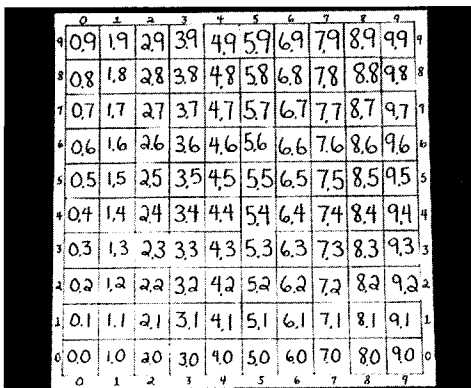 0 1 2 3 4 5 6 7 8 9
9 0.9 1.9 2.9 3.9 4.9 5.9 6.9 7.9 8.9 9.9 9
8 0.8 1.8 2.8 3.8 4.8 5.8 6.8 7.8 8.8 9.8 8
7 0.7 1.7 2.7 3.7 4.7 5.7 6.7 7.7 8.7 9.7 7
6 0.6 1.6 2.6 3.6 4.6 5.6 6.6 7.6 8.6 9.6 6
5 0.5 1.5 2.5 3.5 4.5 5.5 6.5 7.5 8.5 9.5 5
4 0.4 1.4 2.4 3.4 4.4 5.4 6.4 7.4 8.4 9.4 4
3 0.3 1.3 2.3 3.3 4.3 5.3 6.3 7.3 8.3 9.3 3
2 0.2 1.2 2.2 3.2 4.2 5.2 6.2 7.2 8.2 9.2 2
1 0.1 1.1 2.1 3.1 4.1 5.1 6.1 7.1 8.1 9.1 1
0 0.0 1.0 2.0 3.0 4.0 5.0 6.0 7.0 8.0 9.0 0
0 1 2 3 4 5 6 7 8 9